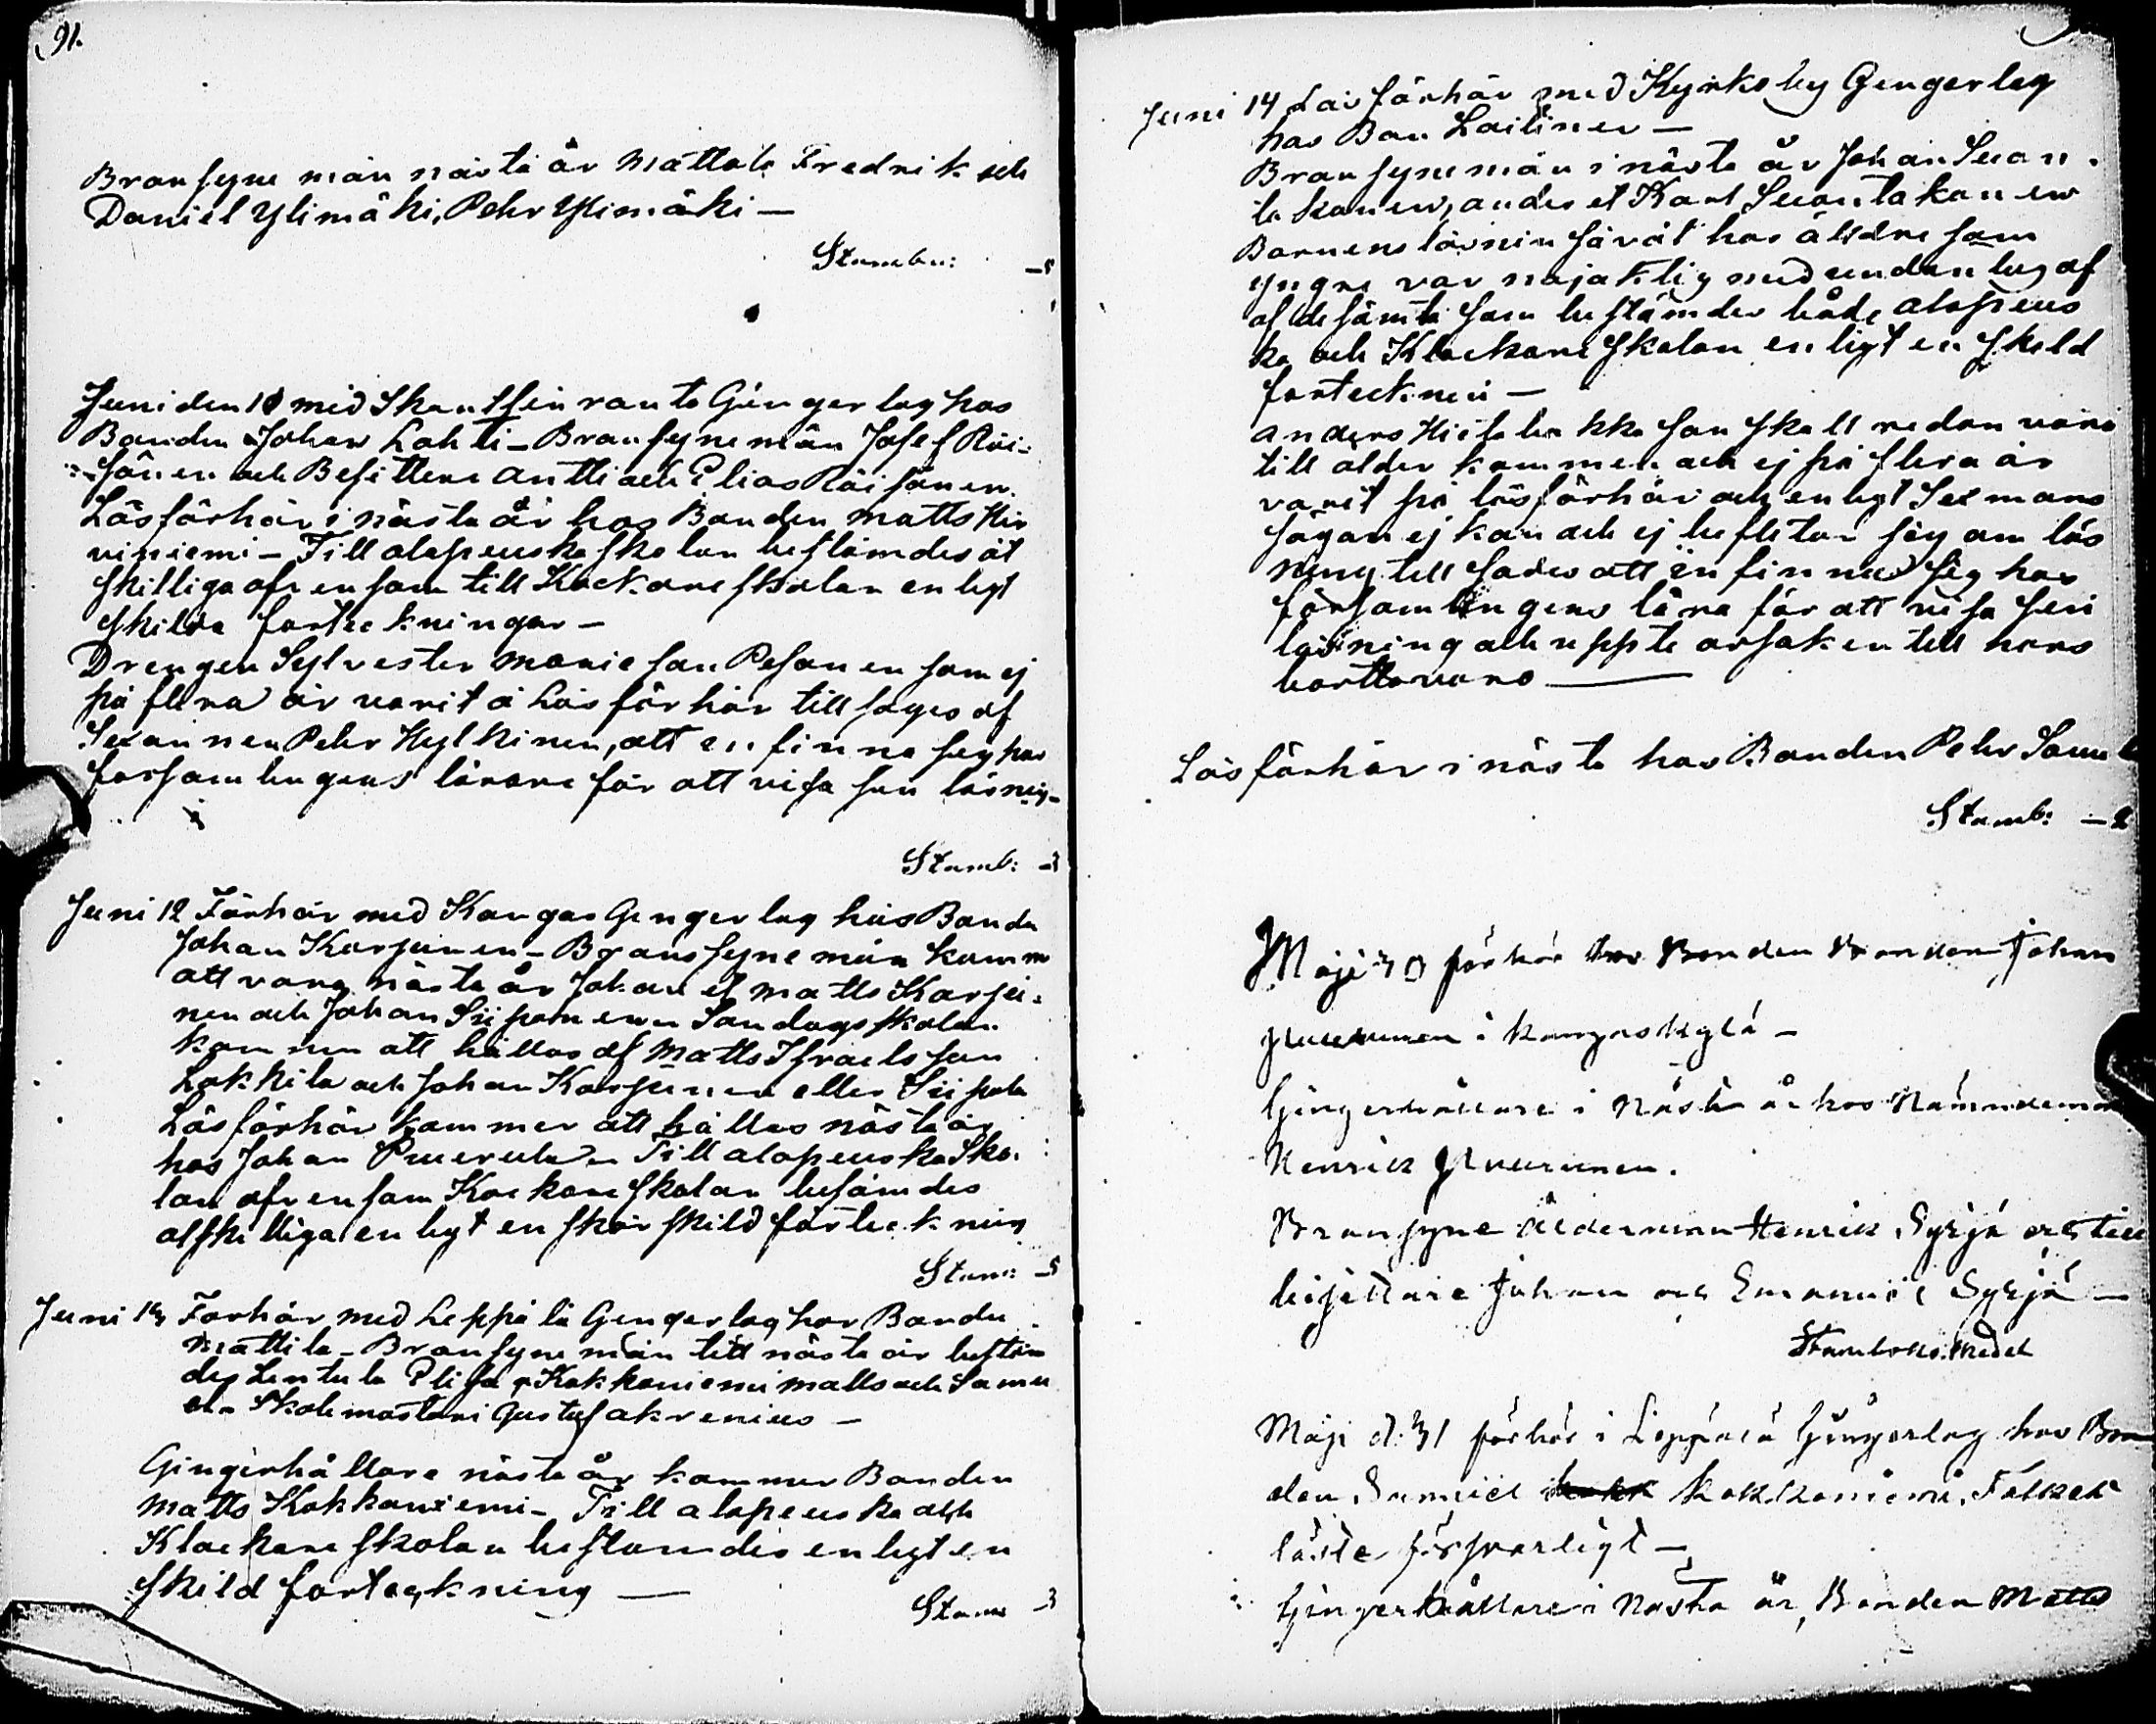 91.
Bransyne män nästa år Mattola Fredrik och
Daniel Ylimäki, Pehr Ylimäki —
Stambu: —5
Juni den 10 med Skantsinranta Gingerlag hos
Bonden Johan Lahti — Bransynemän Josef Räi-
sänen och Besittere Antti och Elias Räisänen.
Läsförhör i nästa år hos Bonden Matts Hir
viniemi — Till alopeuska skolan bestämdes åt
skilliga äfven som till Kockareskolan enligt
skilda forteckningar —
Drengen Sylvester Marieson Pesonen som ej
på flera år varit å Läsförhör tillsages af
Sexannen Pehr Hylkinen, att en finna sig hos
forsamlingens lärare för att visa sin läsnig —
Stamb: —3
Juni 12 Förhör med Kangas Gengerlag hos Bonde
Johan Karjunen — Branssynemän komm
att vara nästa år Johan et Matts Karju-
nen och Johan Siiponen — Sondagsskolan
kommen att hållas af Matts Israelsson
Lakkila och Johan Karjunen eller Siipola
Läsförhör kommer att hållas nästa år
hos Johan Puuerula — Till alopeuska Sko-
lan äfven som Kockareskolan besämdes
alskilliga enligt en skår skild förteckning
Stam: —5
Juni 13 Forhör med Leppälä Gengerlag hos Bonde
Mattila — Bransyne män till nästa år bestäm
des Lentula Elisa, Kokkoniemi Matts och Samu
el — Skolemastari Gustaf akrenius —
Gingerhållare nästa år kommer Bonden
Matts Kokkoniemi — Till alopeuska och
Klockareskolan bestamdes enligt en
skild forteckning —
Stam —3
Juni 14 Läsförhör med Kyrkoby Gengerlag
hos Bon Laitinen —
Bransynemän i nästa år Johan Suon-
takanen, andes et Karl Suontakanen
Barnens läsnin såväl hos äldre som
yngre var nöjaktig med undantag af
af de sämta som bestämdes både alopeus
ka och Klockareskolan enligt en skild
forteckneu —
Anders Hietalankka son skall redan vara
till ålder kommen och ej på flera år
varit på läsförhör och enligt Sexmans
sagan ej kan och ej beflitar sig om läs
ning till sades att infinna sig hos
församlingens lära för att visa sin
läsning och uppte orsaken till hans
borttovaro —
Läsförhör i nästa hos Bonden Pehr Saue
Stamb: —2
Maji 30 förhör hos Bonden Bonden Johan
i Kangaskylä —
Gingerhållare i nästa år hos Nämndeman
Henrick
Bransyne ålderman Henrick Syrjä och till
bisittare Johan och Emanuel Syrjä —
Stamboks medel
Maji d: 31 förhör i Leppälä Gingerlag hos Bon
den Samuel Kokkoniemi. Folket
läste försvarligt —
Gingerhållare i Nästa år, Bonden Matts